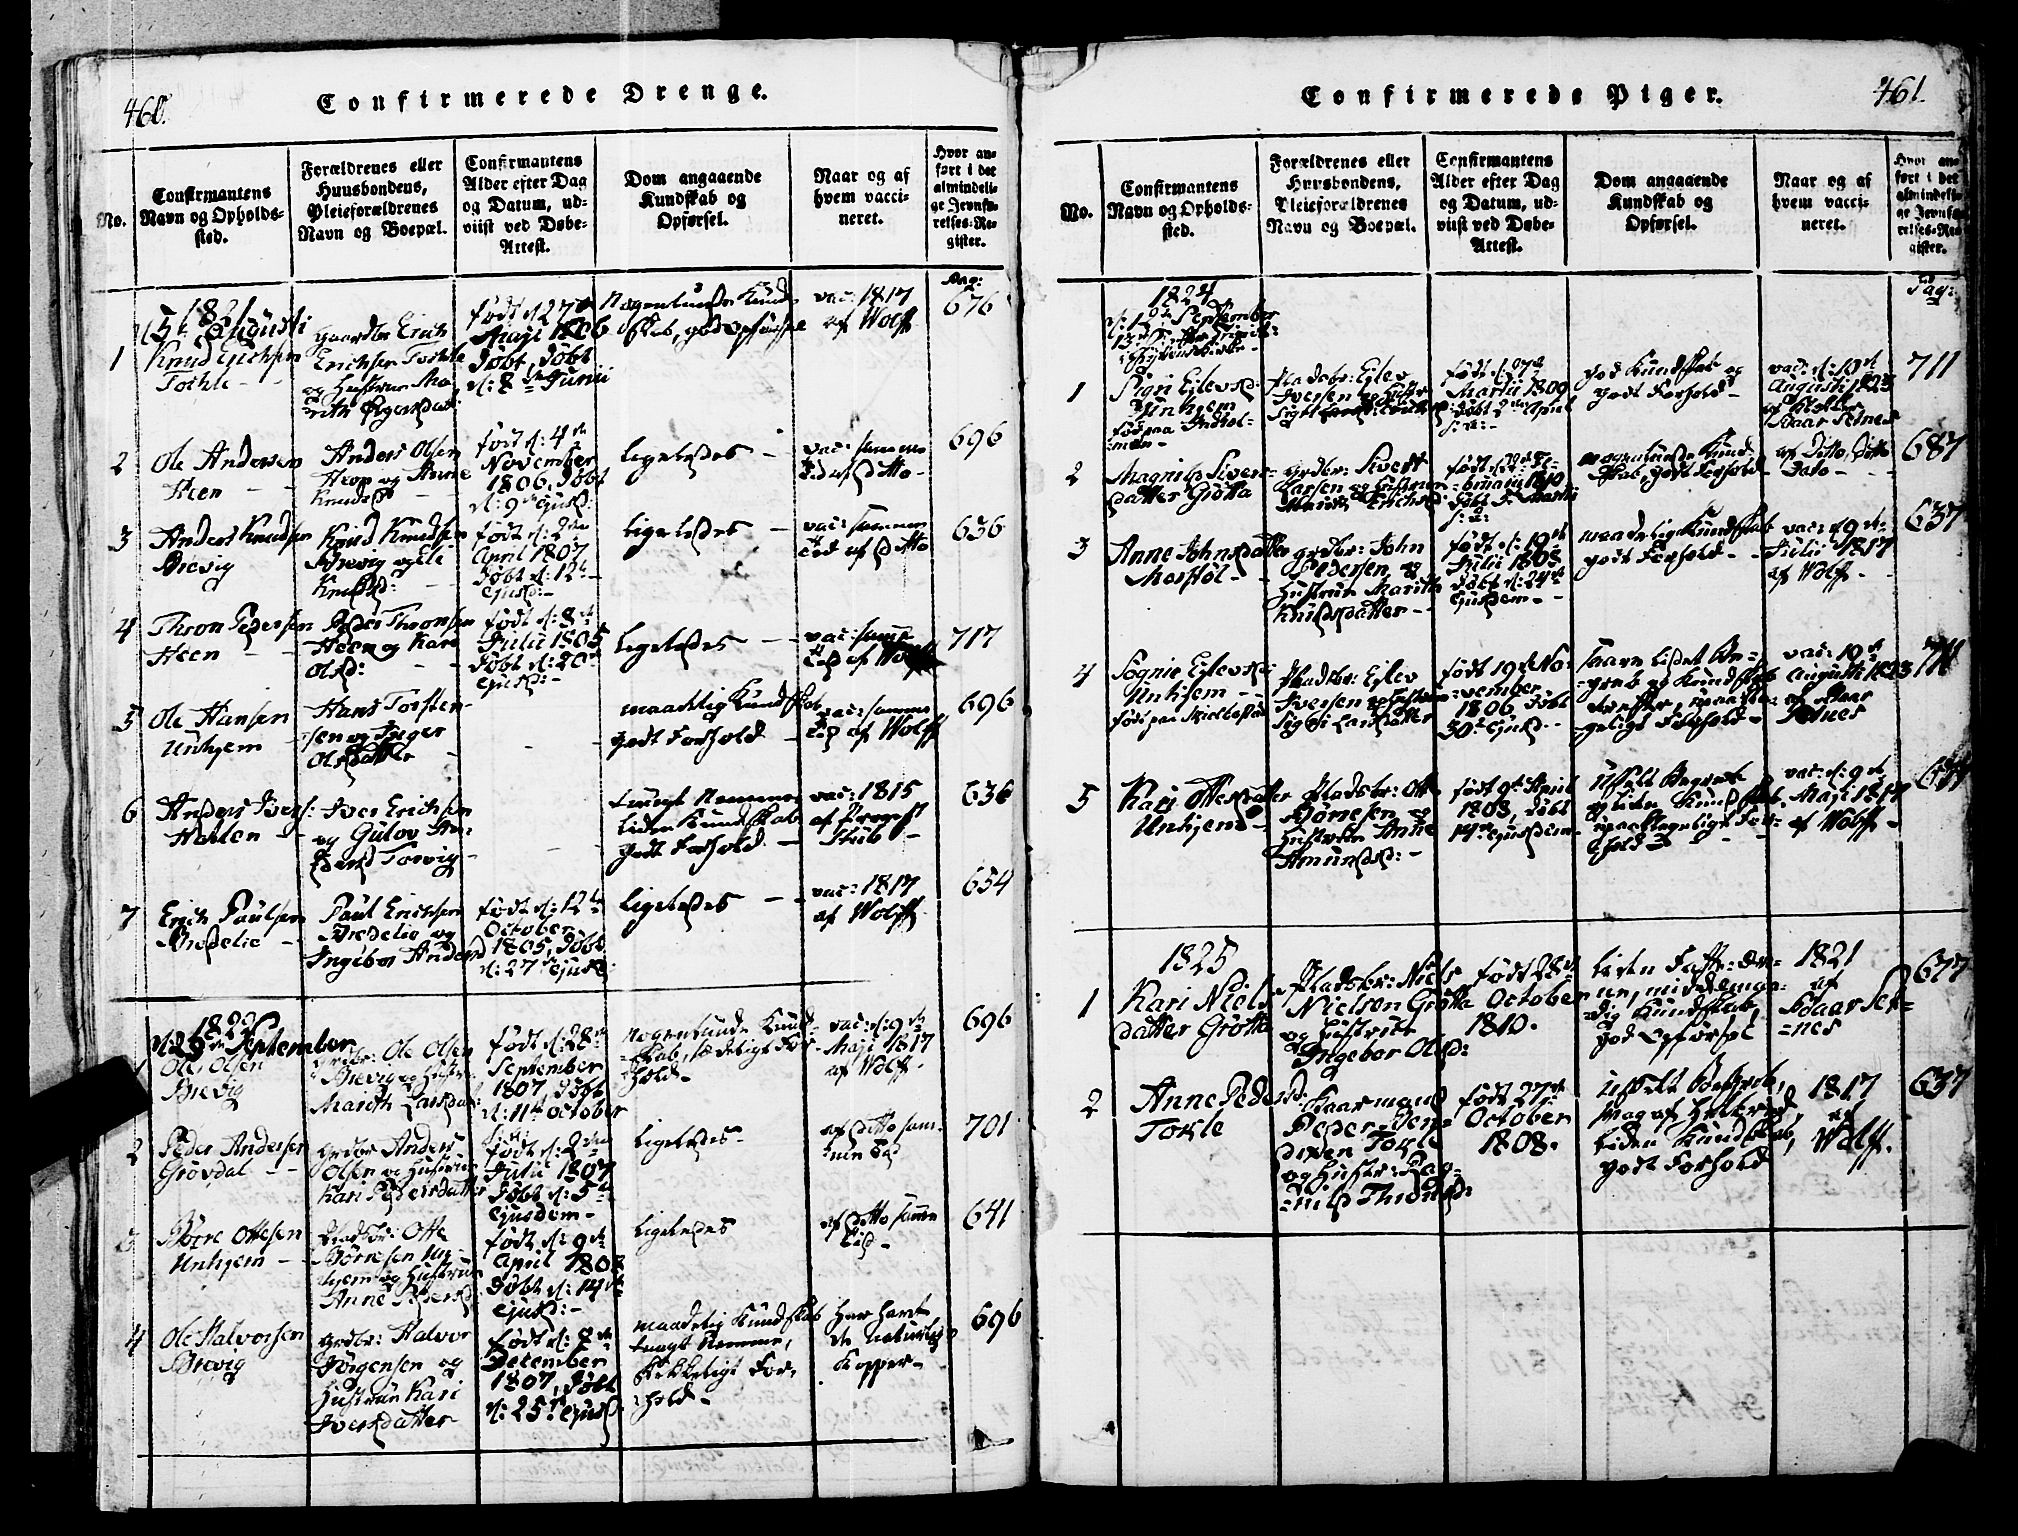 460.
Confirmerede Drenge.
No.
Confirmantens
Navn og Opholds-
sted.
Forældrenes eller
Huusbondens,
Pleieforældrenes
Navn og Boepæl.
Confirmantens
Alder efter Dag
og Datum, ud-
viist ved Døbe-
Attest.
Dom angaaende
Kundskab og
Opførsel.
Naar og af
hvem vacci-
neret.
Hvor an-
ført i det
almindeli-
ge Jevnfø-
relses-Re-
gister.
Pag:
1821
Augusti
1
Knud Erichsen
Torhle
Gaardbr Erich
Erichsen Torhle
og Hustrue Ma-
rith
født d: 27de
Maji 1806
døbt, døbt
d: 8de Junii
Nogenlunde Kund-
skab, god opførsel
vac: 1817
af Wolff
676
2
Ole Andersen
Heen
Anders Olsen
Heen og Anne
Knudsd
født d: 4de
November
1806, døbt
d: 9de ejusd:
Ligeledes
vac: samme
Tid af ditto
696
3
Anders Knudsen
Brevig
Knud Knudsen
Brevig og Ele
Knudsd:
født d: 2den
April 1807
døbt d: 12te
ejusd:
Ligeledes
vac: sammen
Tid af ditto
636
4
Thron Pedersen
Heen
Peder Thronsen
Heen og Kari
Olsd:
født d: 8de
Julii 1805
døbt d: 20de
ejusd:
Ligeledes
vac: samme
Tid af Wolff
717
5
Ole Hansen
Unhjem
Hans Torsten-
sen og Inger
Olsdatter
maadelig Kundskab
godt Forhold
vac: samme
Tid af Wolff
696
6
Anders Ivers:
Hahlen
Iver Erichsen
og Gulov An-
dersd Torvig
tungt Nemme
liden Kundskab
godt Forhold
vac: 1815
af Provst
Stub
636
7
Erich Paulsen
Bredelie
Paul Erichsen
Bredelie og
Ingebor Andersd
født d: 12te
October
1805, døbt
d: 27de ejusd:
Ligeledes
vac: 1817
af Wolff
654
d: 25de September
Ole Olsen
Brevig
Grdbr: Ole Olsen
Brevig og Hustru
Marith Larsdat:
født d: 28de
September
1807 døbt
d: 11te October
Nogenlunde Kund-
skab, sædeligt For-
hold
vac: d: 9de
Maji 1817
af Wolff
696
2
Peder Andersen
Grøvdal
Grdbr Anders
Olsen og Hustrue
Kari Pedersdatter
født d: 2den
Julii 1807
døbt d: 5te
ejusdem
Ligeledes
af ditto sam-
me Tid
701
3
Børre Ottesen
Unhjem
Pladsbr: Otte
Børresen Un-
hjem og Hustrue
Anne
født d: 9de
April 1808
døbt d: 14de
ejusd:
Ligeledes
af ditto samme
Tid
641
4
Ole Halvorsen
Brevig
Grdbr: Halvor
Jørgensen og
Hustrue Kari
Iversdatter
født d: 8de
December
1807, døbt
d: 25de ejusd
maadelig Kundskab
tungt Nemme,
skikkeligt For-
hold
Har havt
de naturlige
Kopper
696
461.
Confirmerede Piger.
No.
Confirmantens
Navn og Opholds-
sted.
Forældrenes eller
Huusbondens,
Pleieforældrenes
Navn og Boepæl.
Confirmantens
Alder efter Dag
og Datum, ud-
viist ved Døbe-
Attest.
Dom angaaende
Kundskab og
Opførsel.
Naar og af
hvem vacci-
neret.
Hvor an-
ført i det
almindeli-
ge Jevnfø-
relses-Re-
gister.
Pag:
1824
September
1
Sigri Eilevsd:
Unhjem
Pladsbr: Eilev
Iversen og Hustr
født d: 27de
Martii 1809
døbt 2den April
god Kundskab og
godt Forhold
vac: d: 19de
Augusti 1823
Setnes
711
2
Magnild Siver-
datter Grøtta
Grdbr: Sivert
Larsen og Hustrue
nogenlunde Kund-
skab, godt Forhold
af ditto, ditto
Dato
687
3
Anne Johnsdatter
Morstøl
Grdbr: John
Pedersen og
Hustrue Marith
Knudsdatter
født d: 19de
Julii 1808
døbt d: 24de
ejusdem
maadelig Kundskab
godt Forhold
vac: d 9de
Julii 1817
af Wolff
637
4
Unhjem
Pladsbr: Eilev
Iversen og Hustrue
Sigri Larsdatter
født 19de No-
vember
1806, døbt
30te ejusd.
saare lidet Be-
greb og Kundskab
derefter, upaakla-
geligt Forhold
vac: 19de
Augusti 1823
Setnes
711
5
Kari Ottesdatter
Unhjem
Pladsbr: Otte
Børresen og
Hustrue Anne
Amundsd:
født 9de April
1808, døbt
14de ejusdem
Usselt Begreb
og liden Kundskab,
upaaklageligt For-
hold
vac: d: 9de
Maji 1817
af Wolff
1825
1
Kari Niels-
datter Grøtta
Pladsbr: Niels
Nielsen Grøtta
og Hustrue
Ingebor Olsd:
født 28de
October
1810.
liden Fatte-Ev-
ne, middelmaa-
dig Kundskab,
god Opførsel
1821
af
Klaar Set-
nes
677
2
Anne Pedersd:
Torle
Peder
Torle
og Hustr: Rag-
nild Thronsd:
født 27de
October
1808.
usselt Begreb,
liden Kundskab,
godt Forhold
1817
af
Wolff.
637